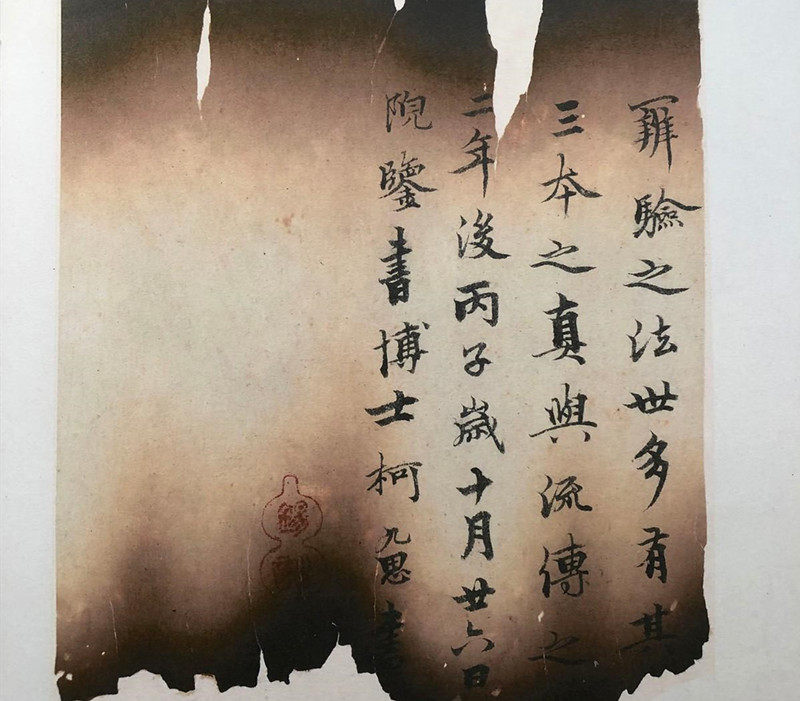 辨驗之法世多有其
三本之真與流傳之
二年後丙子歲十月廿六日
院鑒書博士柯九思書